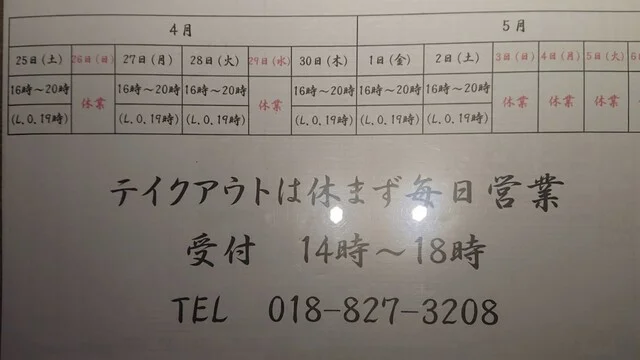 4月 5月
25日(土) 26日(日) 27日(月) 28日(火) 29日(水) 30日(木) 1日(金) 2日(土) 3日(日) 4日(月) 5日(火)
16時～20時 休業 16時～20時 16時～20時 休業 16時～20時 16時～20時 16時～20時 休業 休業 休業
(L.O.19時) (L.O.19時) (L.O.19時) (L.O.19時) (L.O.19時) (L.O.19時)
テイクアウトは休まず毎日営業
受付 14時～18時
TEL 018-827-3208